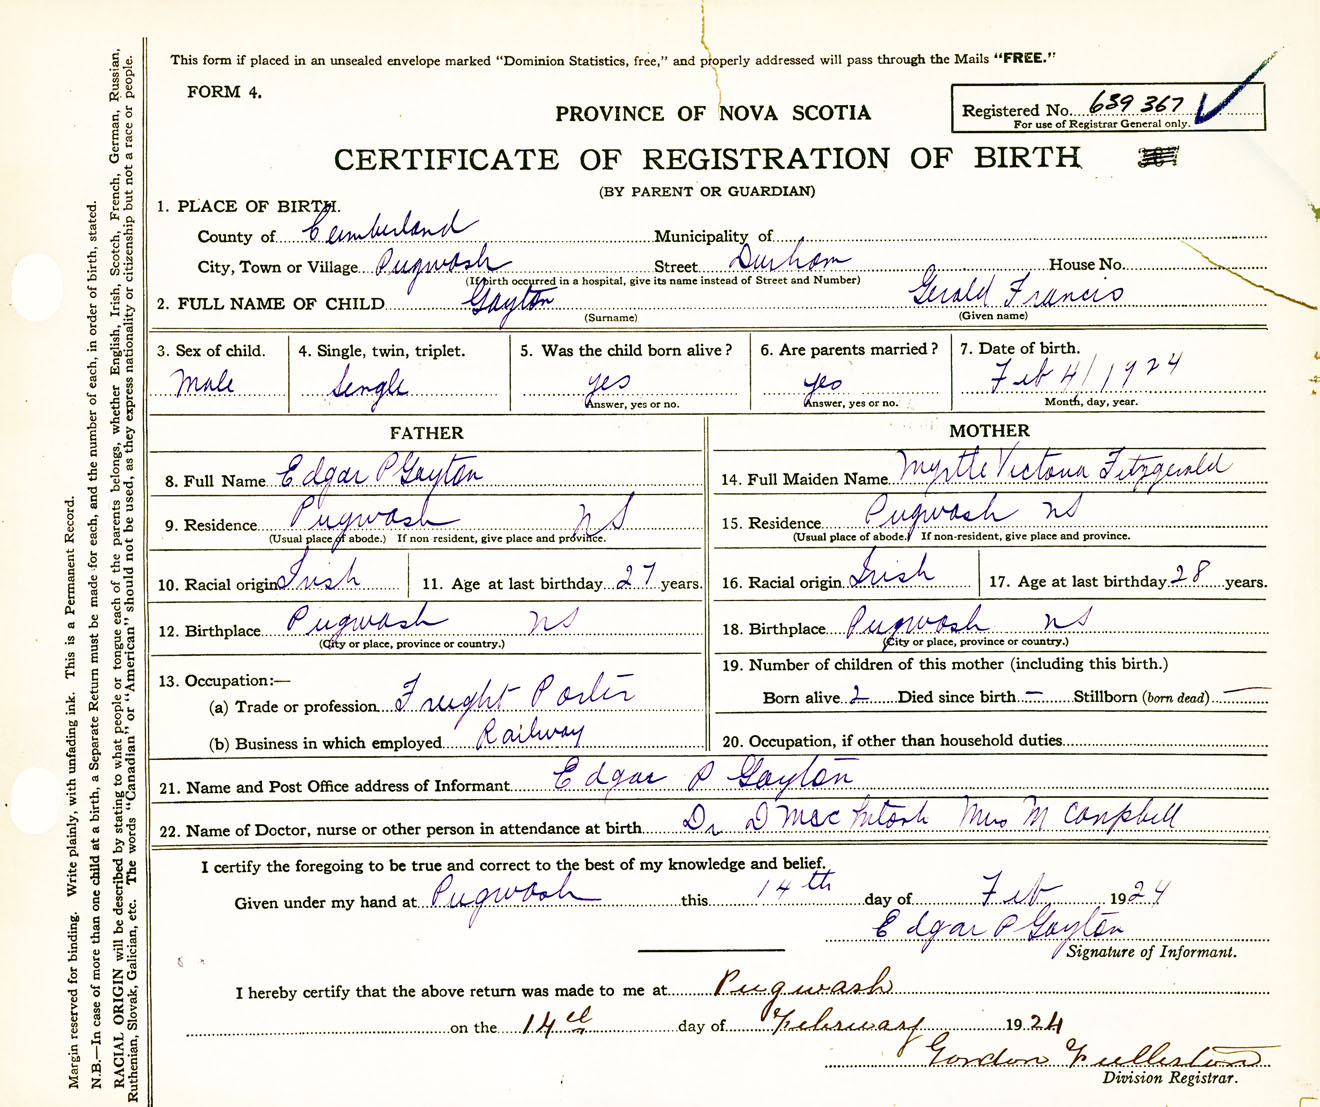 This form if placed in an unsealed envelope marked "Dominion Statistics, free," and properly addressed will pass through the Mails "FREE."
FORM 4.
Registered No. 639 367
For use of Registrar General only.
PROVINCE OF NOVA SCOTIA
CERTIFICATE OF REGISTRATION OF BIRTH
(BY PARENT OR GUARDIAN)
1. PLACE OF BIRTH.
County of Cumberland Municipality of
City, Town or Village Pugwash Street Durham House No.
(If birth occurred in a hospital, give its name instead of Street and Number)
2. FULL NAME OF CHILD Gayton Gerald Francis
(Surname) (Given name)
3. Sex of child. 4. Single, twin, triplet. 5. Was the child born alive? 6. Are parents married? 7. Date of birth.
Male Single yes yes Feb 4/1924
Answer, yes or no. Answer, yes or no. Month, day, year.
FATHER MOTHER
8. Full Name Edgar P Gayton 14. Full Maiden Name Myrtle Victoria Fitzgerald
9. Residence Pugwash NS 15. Residence Pugwash NS
(Usual place of abode.) If non resident, give place and province. (Usual place of abode.) If non-resident, give place and province.
10. Racial origin Irish 11. Age at last birthday 27 years. 16. Racial origin Irish 17. Age at last birthday 28 years.
12. Birthplace Pugwash NS 18. Birthplace Pugwash NS
(City or place, province or country.) (City or place, province or country.)
13. Occupation:— 19. Number of children of this mother (including this birth.)
(a) Trade or profession Freight Porter Born alive 2 Died since birth — Stillborn (born dead) —
(b) Business in which employed Railway 20. Occupation, if other than household duties
21. Name and Post Office address of Informant Edgar P Gayton
22. Name of Doctor, nurse or other person in attendance at birth Dr D MacIntosh Mrs M Campbell
I certify the foregoing to be true and correct to the best of my knowledge and belief.
Given under my hand at Pugwash this 14th day of Feb 1924
Edgar P Gayton
Signature of Informant.
I hereby certify that the above return was made to me at Pugwash
on the 14th day of February 1924
Gordon Fullerton
Division Registrar.
Margin reserved for binding. Write plainly, with unfading ink. This is a Permanent Record.
N.B.—In case of more than one child at a birth, a Separate Return must be made for each, and the number of each, in order of birth, stated.
RACIAL ORIGIN will be described by stating to what people or tongue each of the parents belongs, whether English, Irish, Scotch, French, German, Russian,
Ruthenian, Slovak, Galician, etc. The words "Canadian" or "American" should not be used, as they express nationality or citizenship but not a race or people.